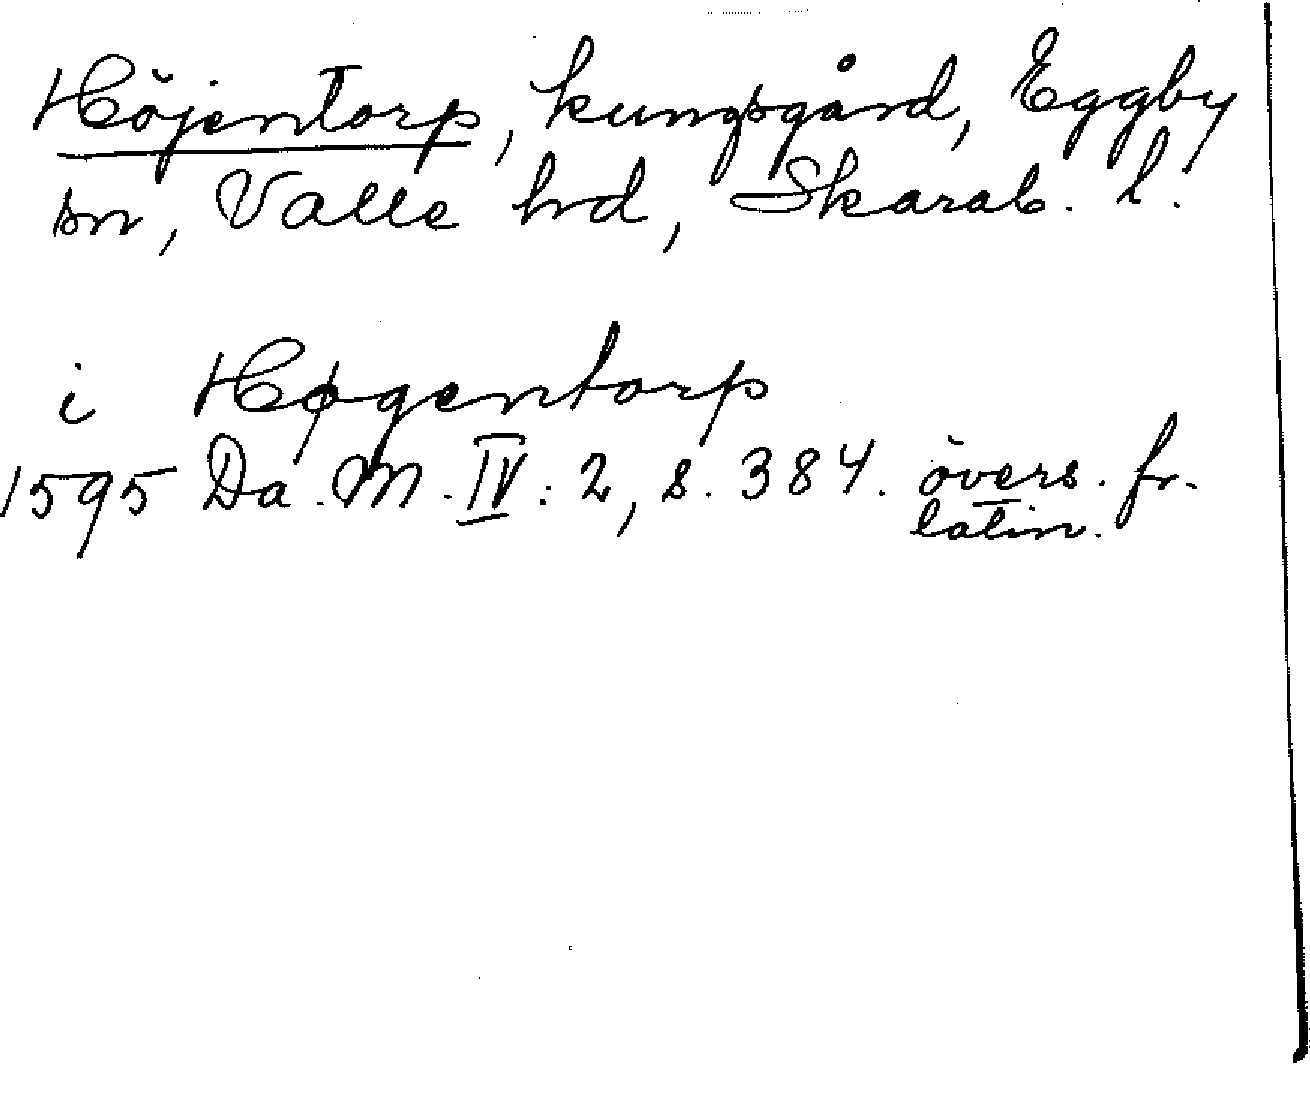 Höjentorp, kungsgård, Eggby
sn, Valle hd, Skarab. l.
i Høgentorp
1595 Da. M. IV: 2, s. 384. övers. fr.
latin.